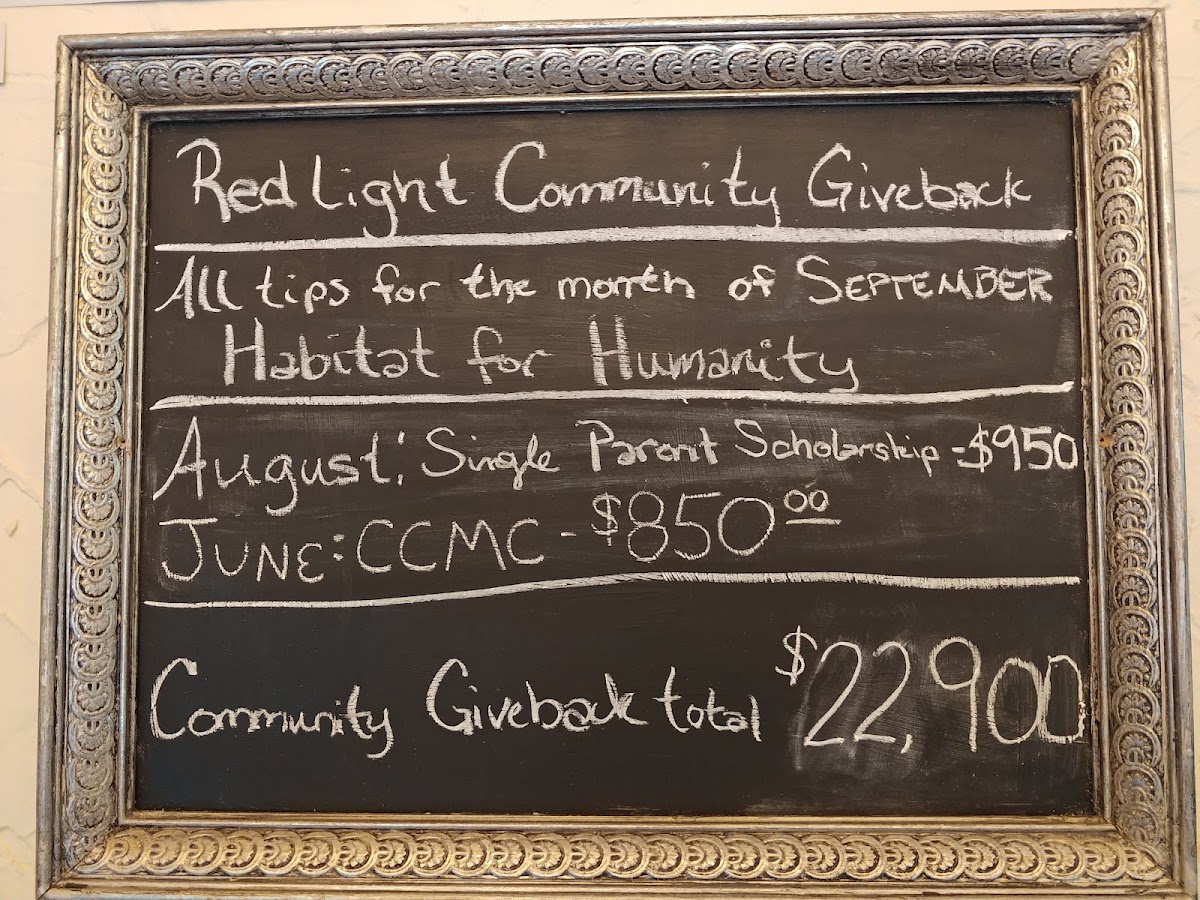 Red Light Community Giveback
All tips for the month of SEPTEMBER
Habitat for Humanity
August: Single Parent Scholarship - $950
JUNE: CCMC - $850⁰⁰
Community Giveback total $22,900